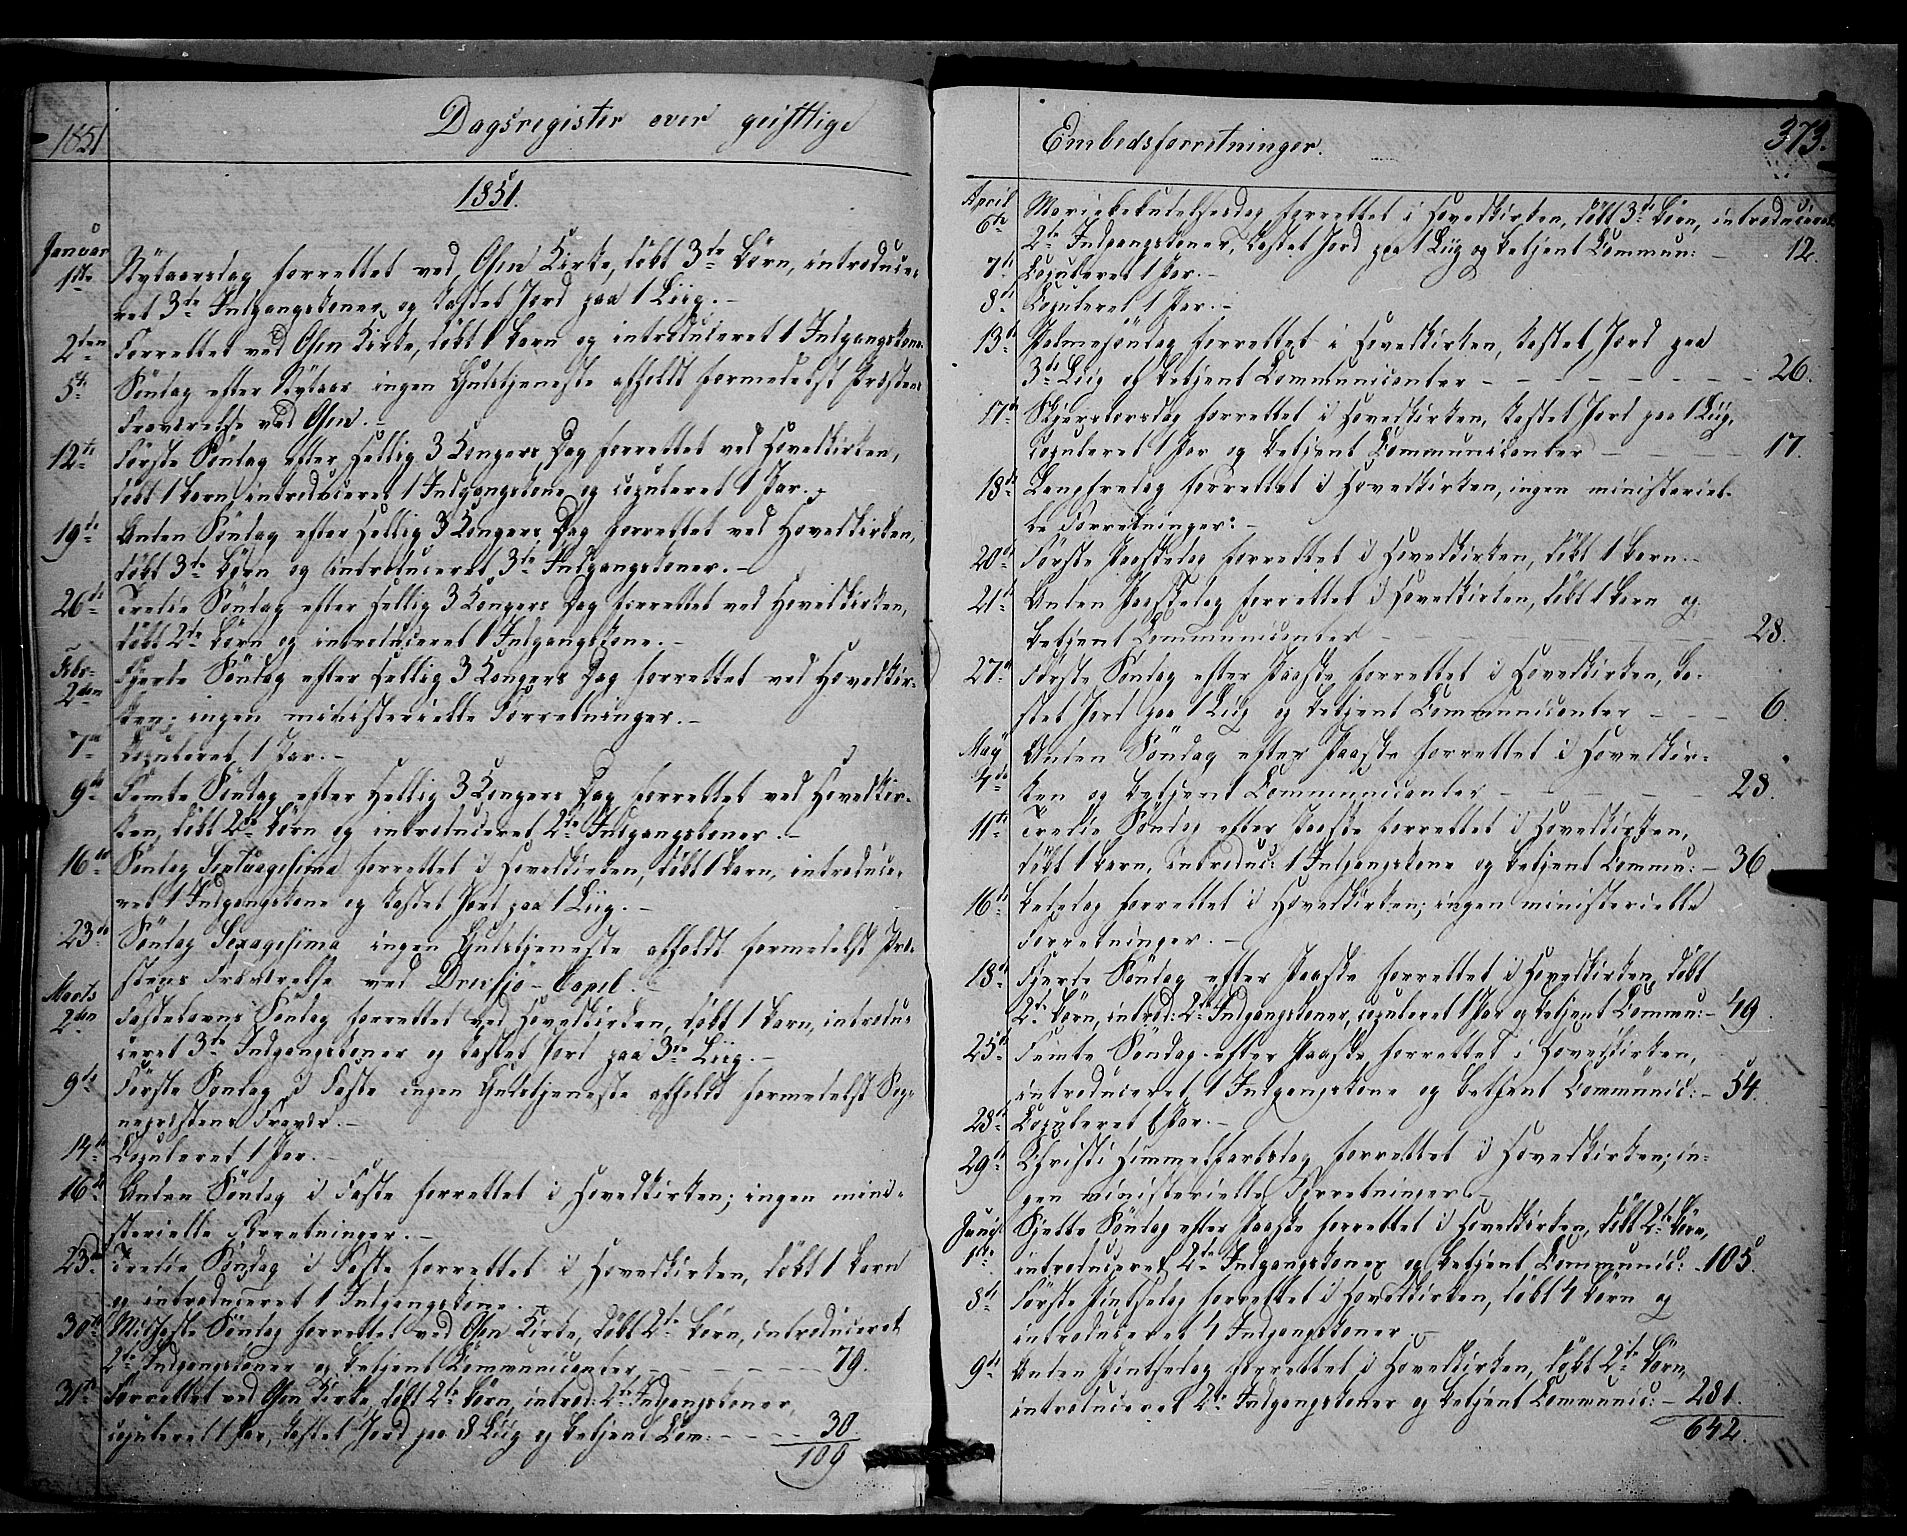 1851
Dagsregister over geistlige
1851.
Januar
1ste Nytaarsdag forrettet ved Osen Kirke, døbt 3de Børn, introduce-
ret 3de Indgangskoner og kastet Jord paa 1 Liig.-
2den Forrettet ved Osen Kirke, døbt 1 Barn og introduceret 1 Indgangskone.
5te Søndag efter Nytaar ingen Gudstjeneste afholdt formedelst Præstens
Fraværelse ved Osen.-
12te Første Søndag efter Hellig 3 Kongers Dag forrettet ved Hovedkirken,
døbt 1 Barn, introduceret 1 Indgangskone og copuleret 1 Par.-
19de Anden Søndag efter Hellig 3 Kongers Dag forrettet ved Hovedkirken,
døbt 3de Børn og introduceret 3de Indgangskoner.-
26de Tredie Søndag efter Hellig 3 Kongers Dag forrettet ved Hovedkirken,
døbt 2de Børn og introduceret 1 Indgangskone.-
Febr.
2den Fjerde Søndag efter Hellig 3 Kongers Dag forrettet ved Hovedkir-
ken; ingen ministerielle Forretninger.-
7de Copuleret 1 Par.-
9de Femte Søndag efter Hellig 3 Kongers Dag forrettet ved Hovedkir-
ken, døbt 2de Børn og introduceret 2de Indgangskoner.-
16de Søndag Septuagesima forrettet i Hovedkirken, døbt 1 Barn, introduce-
ret 1 Indgangskone og kastet Jord paa 1 Liig.-
23de Søndag Sexagesima ingen Gudstjeneste afholdt formedelst Præ-
stens Fraværelse ved Drevsjø-Capel.-
Marts
2den Fastelavns Søndag forrettet ved Hovedkirken, døbt 1 Barn, introdu-
ceret 3de Indgangskoner og kastet Jord paa 3de Liig.-
9de Første Søndag i Faste ingen Gudstjeneste afholdt formedelst Sog-
nepræstens Fravær.-
14de Copuleret 1 Par.-
16de Anden Søndag i Faste forrettet i Hovedkirken; ingen mini-
sterielle Forretninger.-
23de Tredie Søndag i Faste forrettet i Hovedkirken, døbt 1 Barn
og introduceret 1 Indgangskone.
30te Midfaste Søndag forrettet ved Osen Kirke, døbt 2de Børn, introduceret
2de Indgangskoner og betjent Communicanter - - - 79.
31te Forrettet ved Osen Kirke, døbt 2de Børn, introd: 2de Indgangskoner,
copuleret 1 Par, kastet Jord paa 8 Liig og betjent Com: - - - 30.
109
Embedsforretninger.
373.
April
6te Mariæbebudelsesdag forrettet i Hovedkirken, døbt 3de Børn, introduceret
2de Indgangskoner, kastet Jord paa 1 Liig og betjent Commun: - 12.
7de Copuleret 1 Par.-
8de Copuleret 1 Par.-
13de Palmesøndag forrettet i Hovedkirken, kastet Jord paa
3de Liig og betjent Communicanter - - - 26.
17de Skjertorsdag forrettet i Hovedkirken, kastet Jord paa 1 Liig,
copuleret 1 Par og betjent Communicanter - - - 17.
18de Langfredag forrettet i Hovedkirken, ingen ministeriel-
le Forretninger:-
20de Første Paaskedag forrettet i Hovedkirken, døbt 1 Barn.-
21de Anden Paaskedag forrettet i Hovedkirken, døbt 1 Barn og
betjent Communicanter - - - 28.
27de Første Søndag efter Paaske forrettet i Hovedkirken, ka-
stet Jord paa 1 Liig og betjent Communicanter - - - 6.
May
4de Anden Søndag efter Paaske forrettet i Hovedkir-
ken og betjent Communicanter - - - 28.
11te Tredie Søndag efter Paaske forrettet i Hovedkirken,
døbt 1 Barn, introduc: 1 Indgangskone og betjent Commu: - 36
16de Bededag forrettet i Hovedkirken; ingen ministerielle
Forretninger.-
18de Fjerde Søndag efter Paaske forrettet i Hovedkirken, døbt
2de Børn, introd: 2de Indgangskoner, copuleret 1 Par og betjent Commu: - 49.
25de Femte Søndag efter Paaske forrettet i Hovedkirken,
introduceret 1 Indgangskone og betjent Communic: - 54.
28de Copuleret 1 Par.-
29de Christi Himmelfartsdag forrettet i Hovedkirken; in-
gen ministerielle Forretninger.-
Juni
1ste Sjette Søndag efter Paaske forrettet i Hovedkirken, døbt 2de Børn,
introduceret 2de Indgangskoner og betjent Communic: - 105.
8de Første Pintsedag forrettet i Hovedkirken, døbt 4 Børn og
introduceret 4 Indgangskoner.-
9de Anden Pintsedag forrettet i Hovedkirken, døbt 2de Børn,
introduceret 2de Indgangskoner og betjent Communic: - 281.
642.